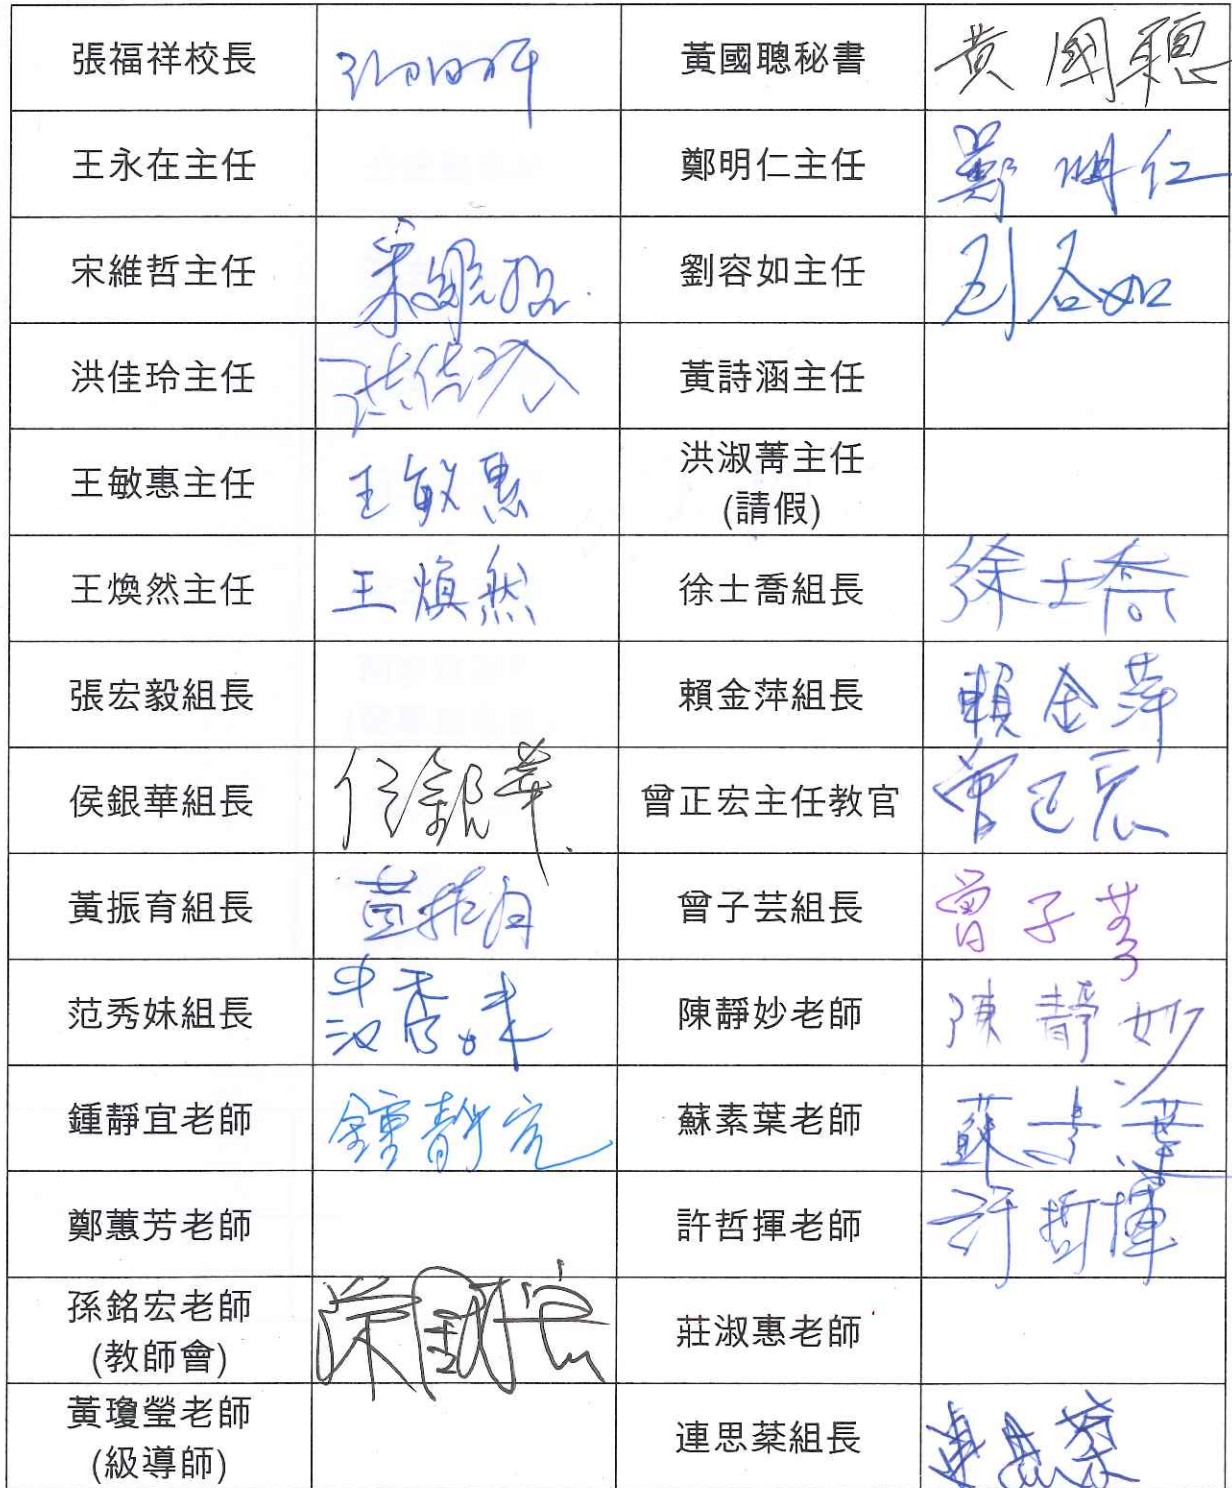 張福祥校長
黃國聰秘書 黃國聰
王永在主任
鄭明仁主任 鄭明仁
宋維哲主任
劉容如主任 刘容如
洪佳玲主任 洪佳玲
黃詩涵主任
王敏惠主任 王敏惠
洪淑菁主任
(請假)
王煥然主任 王煥然
徐士喬組長 徐士喬
張宏毅組長
賴金萍組長 賴金萍
侯銀華組長 侯銀華
曾正宏主任教官 曾正宏
黃振育組長 黃振育
曾子芸組長 曾子芸
范秀妹組長 范秀妹
陳靜妙老師 陳靜妙
鍾靜宜老師 鍾靜宜
蘇素葉老師 蘇素葉
鄭蕙芳老師
許哲揮老師 許哲揮
孫銘宏老師
(教師會)
莊淑惠老師
黃瓊瑩老師
(級導師)
連思棻組長 連思棻